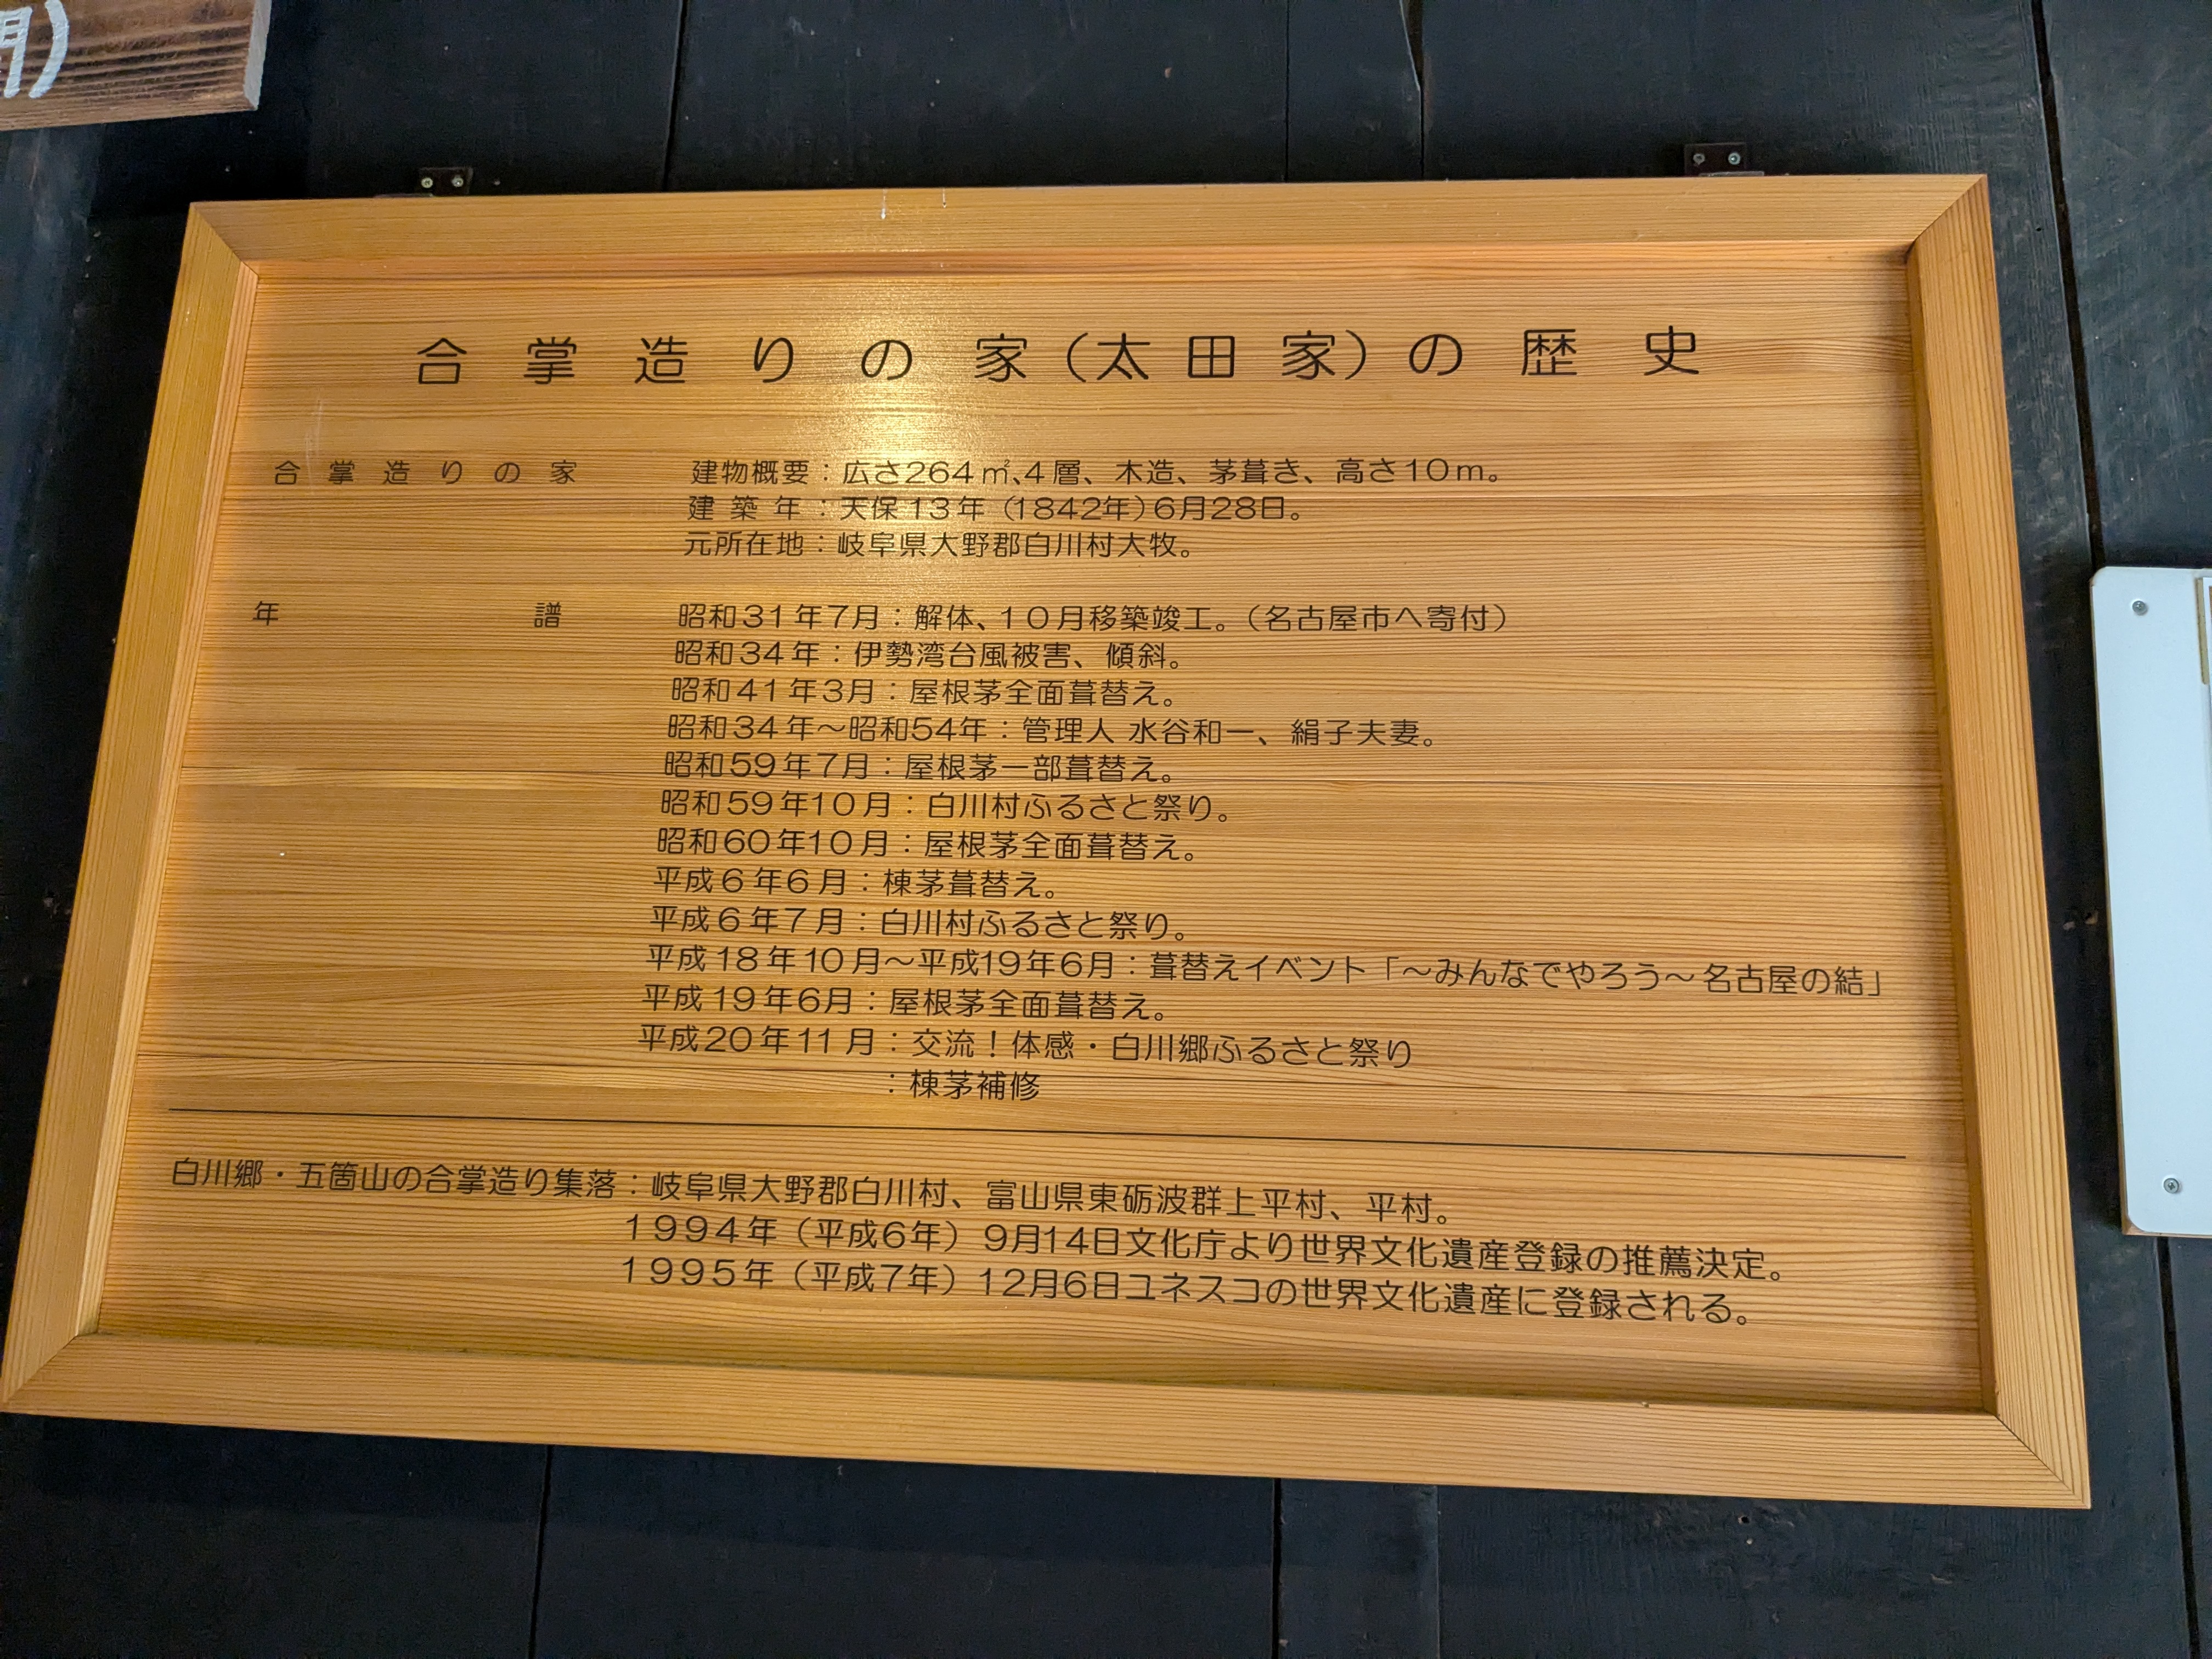 合掌造りの家（太田家）の歴史
合掌造りの家 建物概要：広さ264㎡、4層、木造、茅葺き、高さ10m。
建築年：天保13年（1842年）6月28日。
元所在地：岐阜県大野郡白川村大牧。
年譜 昭和31年7月：解体、10月移築竣工。（名古屋市へ寄付）
昭和34年：伊勢湾台風被害、傾斜。
昭和41年3月：屋根茅全面葺替え。
昭和34年～昭和54年：管理人 水谷和一、絹子夫妻。
昭和59年7月：屋根茅一部葺替え。
昭和59年10月：白川村ふるさと祭り。
昭和60年10月：屋根茅全面葺替え。
平成6年6月：棟茅葺替え。
平成6年7月：白川村ふるさと祭り。
平成18年10月～平成19年6月：葺替えイベント「～みんなでやろう～名古屋の結」
平成19年6月：屋根茅全面葺替え。
平成20年11月：交流！体感・白川郷ふるさと祭り
：棟茅補修
白川郷・五箇山の合掌造り集落：岐阜県大野郡白川村、富山県東砺波群上平村、平村。
1994年（平成6年）9月14日文化庁より世界文化遺産登録の推薦決定。
1995年（平成7年）12月6日ユネスコの世界文化遺産に登録される。